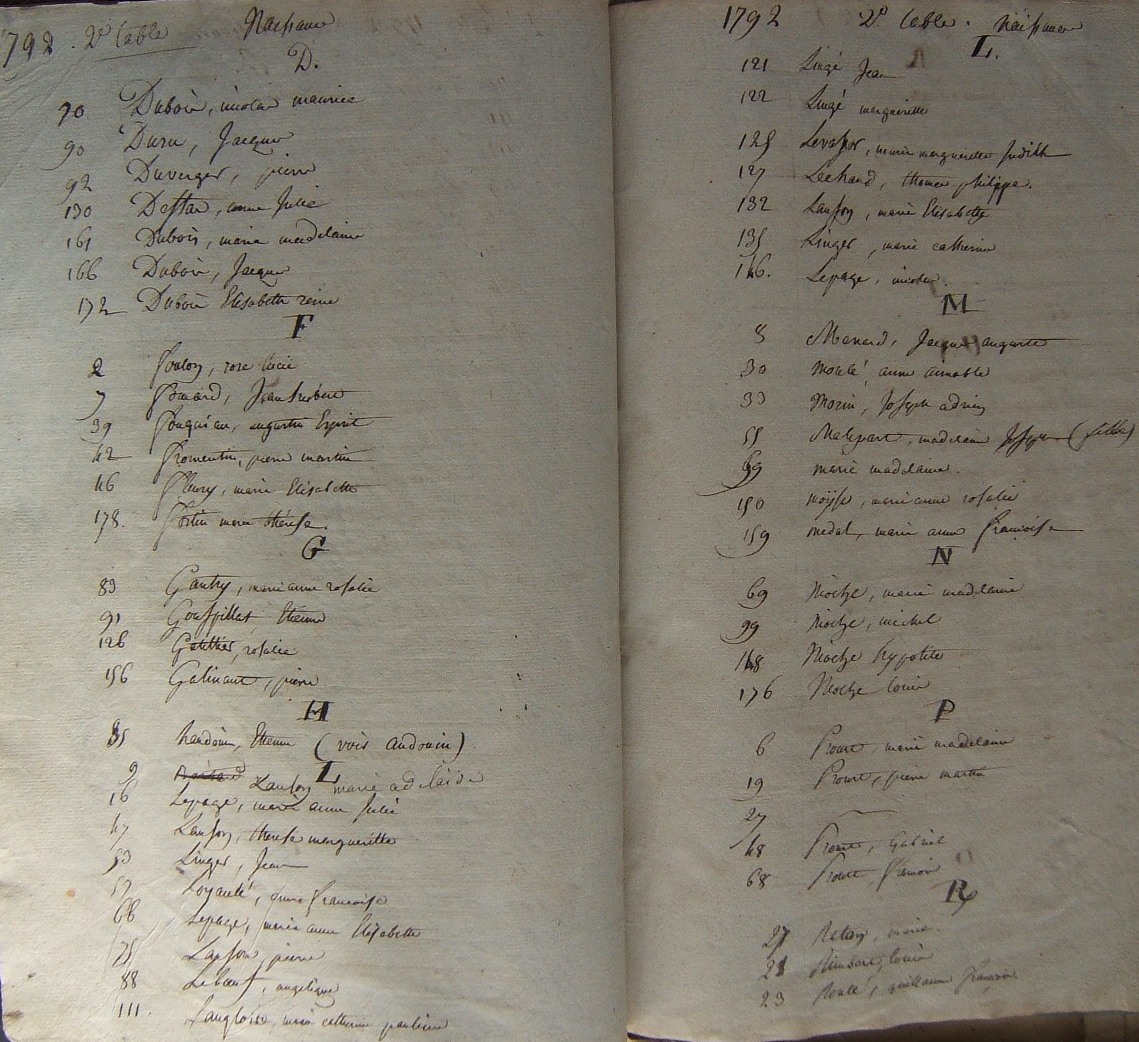 1792. 2e table Naissance
D.
70 Dubois, nicolas maurice
90 Duru, Jacques
92 Duverger, pierre
130 anne Julie
161 Dubois, marie madelaine
166 Dubois, Jacques
172 Dubois Elisabeth reine
F
2 Foulon, rose
7 Fouard, Jean
39 augustin Esprit
42 Fromentin, pierre martin
46 Fleury, marie Elisabeth
178. Fortin marie thérese.
G
83 Gautry, marie anne rosalie
91 Gouspillat, Etienne
126 rosalie
156 Galinant, pierre
H
85 handouin, Etienne (vois audouin)
L
9 Lanson marie adelaide
16 Lepage, marie anne Julie
47 Lanson, therese marguerite
53 Linger, Jean
57 Loyauté, anne francoise
66 Lepage, marie anne Elisabeth
75 Lanson, pierre
88 Lebeuf, angelique
111. Langlois, marie catherine pauline
1792 2e table. Naissance
L.
121 Lingé Jean
122 Lingé marguerite
125 Levassor, marie marguerite Judith
127 thomas philippe.
132 Lanson, marie Elisabeth
135 Linger, marie catherine
146. Lepage, nicolas.
M
8 Menard, Jacques auguste
30 Moulé anne aimable
33 Morin, Joseph adrien
55 Malepart, madelaine Joseph (fille)
69 marie madelaine.
150 moÿse, marie anne rosalie
159 medal, marie anne françoise
N
69 Niochze, marie madelaine
99 Niochze, michel
148 Niochze hypolite
176 Niochze louise
P
6 Prout, marie madelaine
19 Prout, pierre martin
27
48 Prout, Gabriel
68 Prout, francois
R
27 marie.
21 Rimbert, louis
23 Roulé, guillaume françois